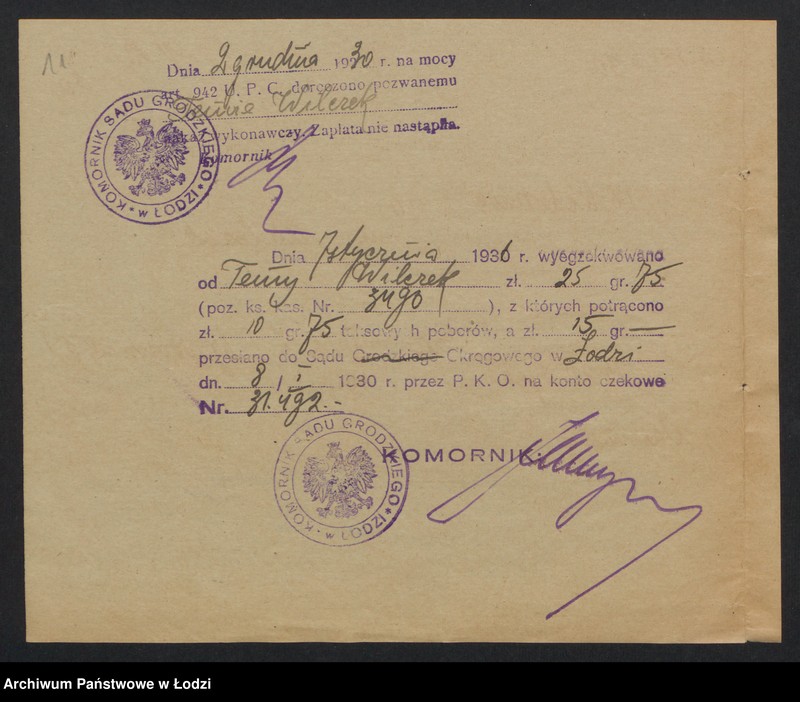 11
Dnia 2 grudnia 1930 r. na mocy
art. 942 U. P. C. doręczono pozwanemu
Temie Wilczek
nakaz wykonawczy. Zapłata nie nastąpiła.
Komornik
KOMORNIK SĄDU GRODZKIEGO * w ŁODZI *
Dnia 7 stycznia 1931 r. wyegzekwowano
od Temy Wilczek zł. 25 gr. 75
(poz. ks. kas. Nr. 3490 ), z których potrącono
zł. 10 gr. 75 taksowych poborów, a zł. 15 gr. —
przesłano do Sądu Grodzkiego Okręgowego w Łodzi
dn. 8 / I 1930 r. przez P. K. O. na konto czekowe
Nr. 31.492.-
KOMORNIK:
KOMORNIK SĄDU GRODZKIEGO * w ŁODZI *
Archiwum Państwowe w Łodzi